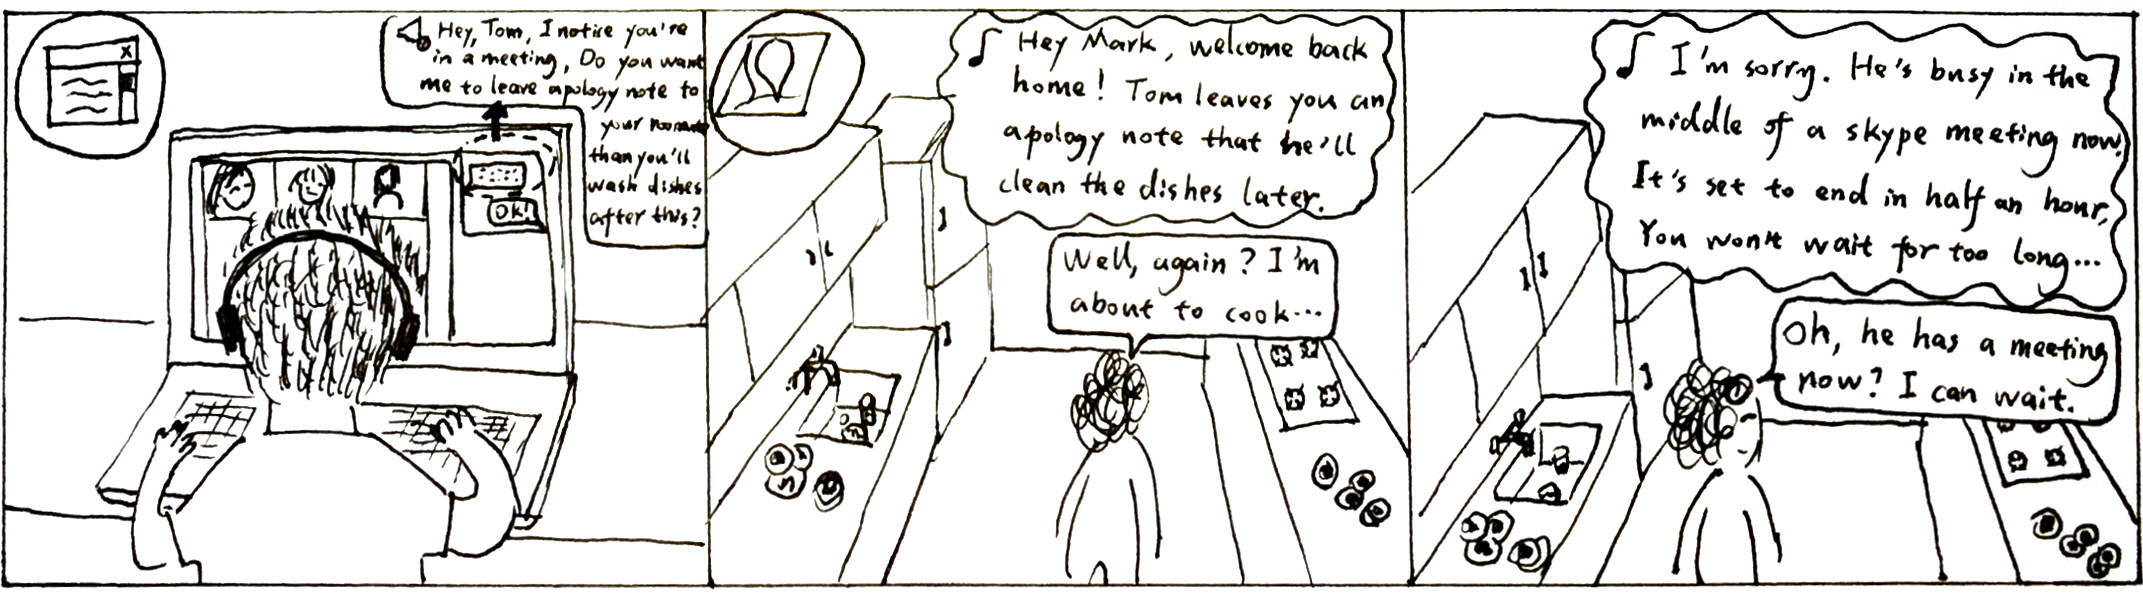 x
Hey, Tom, I notice you're
in a meeting, Do you want
me to leave apology note to
your roommate
than you'll
wash dishes
after this?
OK!
Hey Mark, welcome back
home! Tom leaves you an
apology note that he'll
clean the dishes later.
Well, again? I'm
about to cook...
I'm sorry. He's busy in the
middle of a skype meeting now.
It's set to end in half an hour,
You won't wait for too long...
Oh, he has a meeting
now? I can wait.